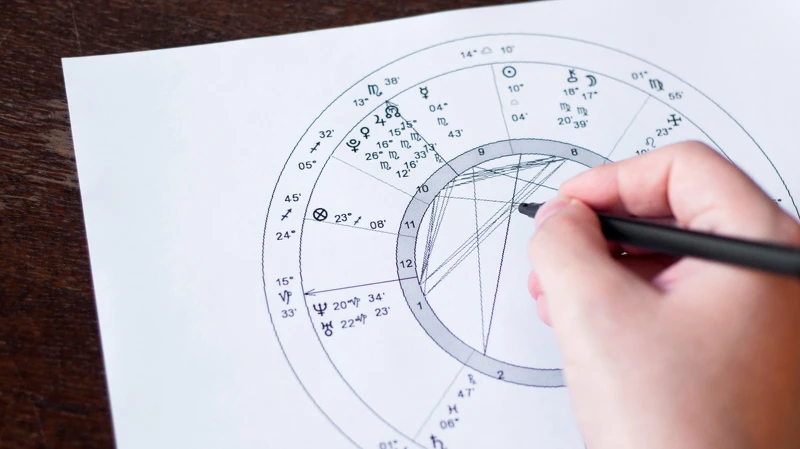 14° ♎ 10'
13° ♏ 38'
☿
04°
♏
43'
☉
10°
♎
04'
⚷ ☽
18° 17°
♍ ♍
20' 39'
01° ♍ 55'
23°
♌
♃ ☊
♇ ♀
15° 15°
16° ♏ ♏
26° ♏ 33' 13'
♏ 16' ℞
12'
32'
♐
05°
45'
♐
24°
⊗ 23° ♐ 08'
15°
♑
33'
♆ 20° ♑ 34'
♅ 22° ♑ 23'
9
8
10
11
12
1
2
℞
47'
♓
06°
♄
01°